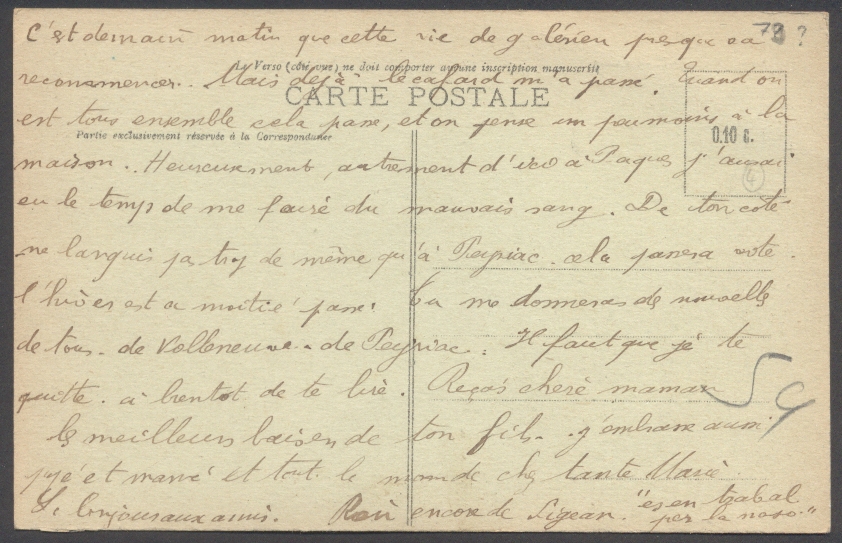 C'est demain matin que cette vie de galérien presque va
73 ?
Le Verso (côté vue) ne doit comporter aucune inscription manuscrite
recommencer. Mais déjà le cafard m'a passé. Quand on
CARTE POSTALE
est tous ensemble cela passe, et on pense un peu moins à la
Partie exclusivement réservée à la Correspondance
0.10 c.
maison. Heureusement, autrement d'ici à Paques j'aurai
4
eu le temps de me faire du mauvais sang. De ton coté
ne languis pas trop de même qu'à Peyriac. cela passera vite.
l'hiver est a moitié passé. Tu me donneras de nouvelles
de tous. de Velleneuve. de Peyriac. Il faut que je te
quitte. a bientot de te lire. Reçois chere maman
54
les meilleurs baisers de ton fils. j'embrasse aussi
et et tout le monde chez tante Marie
Le bonjour aux amis. encore de Sigean. "es en trabal
per la noso."